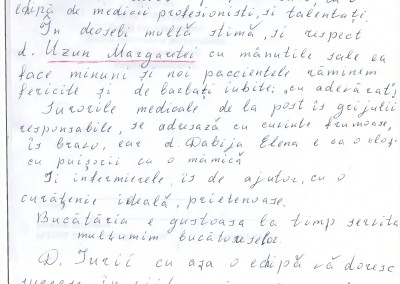 echipă de medicii profesionisti, si talentați.
În deosebi multă stimă, si respect
d. Uzun Margaretei cu mănutile sale ea
face minuni și noi paccientele răminem
fericite și de barbați iubite; „cu adevărat";
Surorile medicale de la post îs grijulii
responsabile, se adresază cu cuvinte frumoase,
îs bravo, ear d. Dabija Elena e ca o cloș-
cu puișorii ca o mămică
Si infermierele, îs de ajutor, cu o
curățenie ideală, prietenoase.
Bucătăria e gustoasa la timp servita
mulțumim bucătareselor.
D. Iurii cu asa o echipă vă doresc